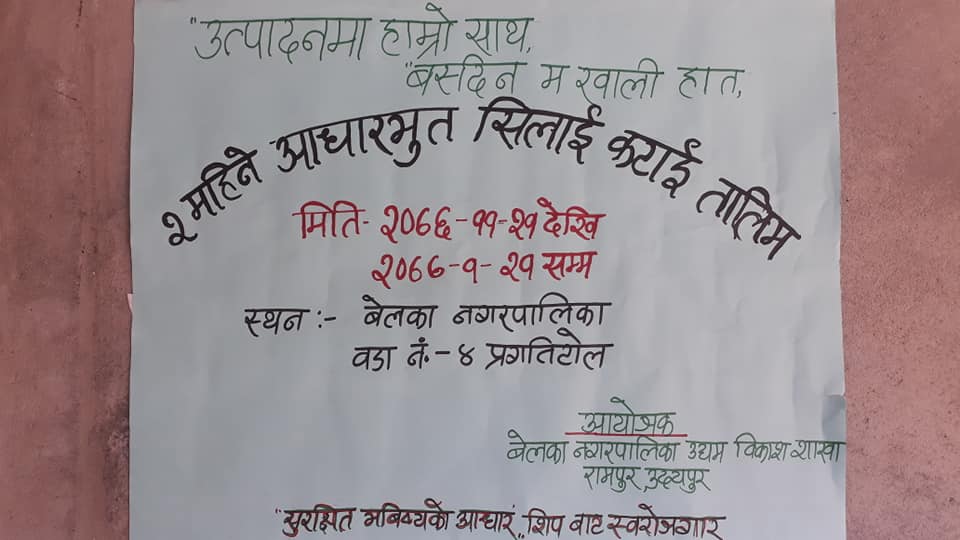 "उत्पादनमा हाम्रो साथ,
"बसदिन म खाली हात,
२ महिने आधारभुत सिलाई कटाई तालिम
मिति- २०७६-११-२१ देखि
२०७७-१-२१ सम्म
स्थन :- बेलका नगरपालिका
वडा नं.- ४ प्रगतिटोल
आयोजक
बेलका नगरपालिका उद्यम विकाश शाखा
रामपुर, उदयपुर
"सुरक्षित भबिष्यको आधार,, शिप बाट स्वरोजगार